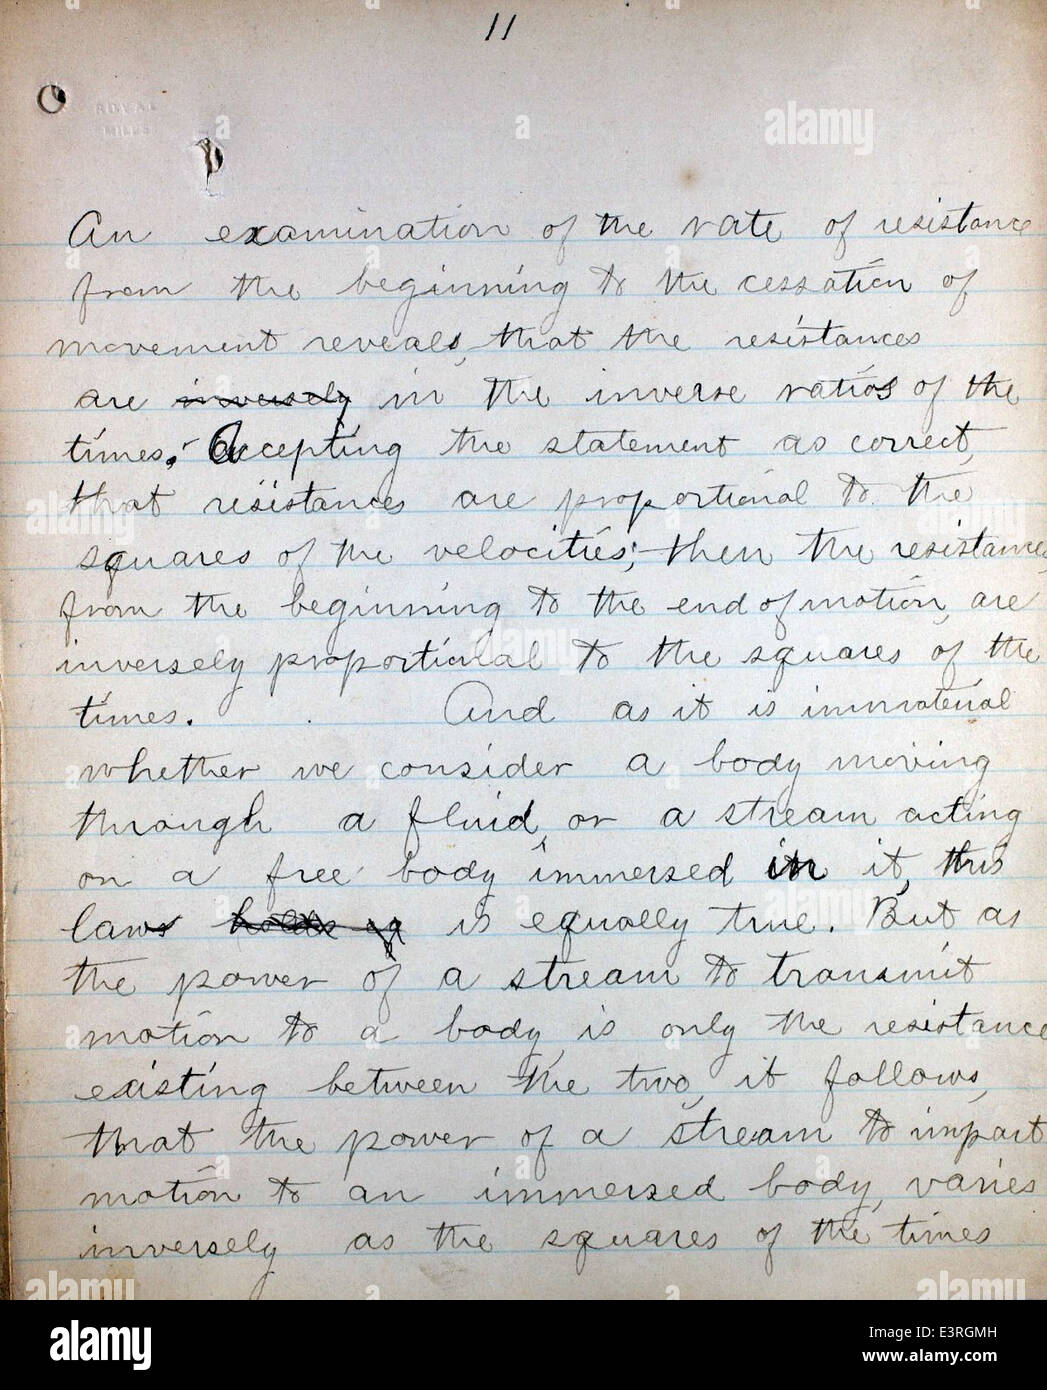 11
ROYAL
MILLS
An examination of the rate of resistance
from the beginning to the cessation of
movement reveals, that the resistances
are inversely in the inverse ratios of the
times.- Accepting the statement as correct,
that resistances are proportional to the
squares of the velocities;- then the resistances,
from the beginning to the end of motion, are
inversely proportional to the squares of the
times. And as it is immaterial
whether we consider a body moving
through a fluid, or a stream acting
on a free body immersed in it, this
law holds is equally true. But as
the power of a stream to transmit
motion to a body, is only the resistance
existing between the two, it follows,
that the power of a stream to impart
motion to an immersed body, varies
inversely as the squares of the times
alamy
Image ID: E3RGMH
www.alamy.com